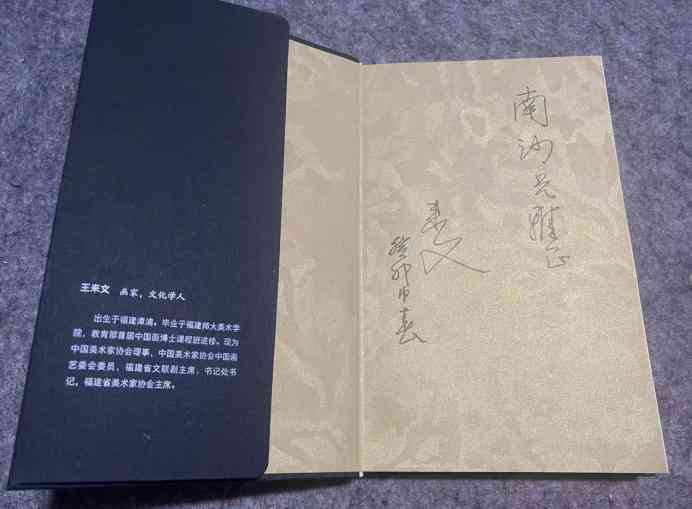 王来文 画家，文化学人
出生于福建漳浦。毕业于福建师大美术学
院，教育部首届中国画博士课程班进修。现为
中国美术家协会理事、中国美术家协会中国画
艺委会委员，福建省文联副主席、书记处书
记，福建省美术家协会主席。
南 兄雅正
来文
癸卯中春